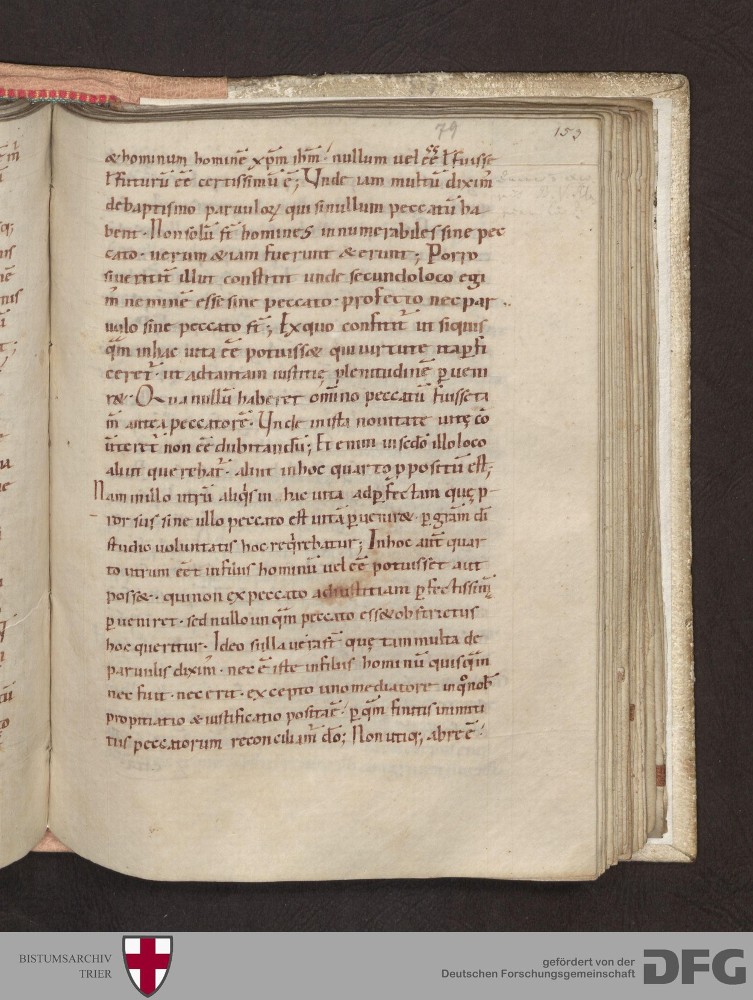 79
153
& hominum hominē xp̄m ih̄m · nullum uel eē ł fuisse
ł futurū eē certissimū ē; Unde iam multū dixim̄
debaptismo paruuloꝝ qui si nullum peccatū ha
bent · Non solū st̄ homines innumerabiles sine pec
cato · uerum & iam fuerunt & erunt; Porro
si ueritū illut constitit unde secundo loco egi
m̄ neminē esse sine peccato · profecto nec par
uulo sine peccato st̄; Ex quo conficit̄ ut siquis
q̄m in hac uita eē potuiss& qui uirtute ita ꝑfi
ceret̄ · ut ad tantam iustitię plenitudinē ꝑueni
r& · Qua nullū haberet om̄ino peccatū fuisse ta
m̄ antea peccatorē · Unde in ista nouitate uitę cō
ūteret̄ non eē dubitandū; Et enim in sc̄do illo loco
aliut querebat̄ · aliut in hoc quarto ꝓpositū est;
Nam in illo utrū aliq̄s in hac uita ad ꝑfectam quę p
ror sus sine ullo peccato est uitā ꝑuenir& · ꝑ grām dī
studio uoluntatis hoc req̄rebatur; In hoc aūt quar
to utrum eēt in filiis hominū uel eē potuisset aut
poss& · qui non ex peccato ad iustitiam ꝑfectissimā
ꝑueniret · sed nullo unq̄m peccato ess& obstrictus
hoc queritur · Ideo si illa uera st̄ quę tam multa de
paruulis dixim̄ · nec ē iste in filiis hominū quisq̄m
nec fuit · nec erit · excepto uno mediatore in q̊ nob̄
propitiatio & iustificatio posita ē · ꝑ q̄m finitis inimici
tiis peccatorum reconciliam̄ dō; Non utiq; abre ē ·
BISTUMSARCHIV
TRIER
gefördert von der
Deutschen Forschungsgemeinschaft
DFG